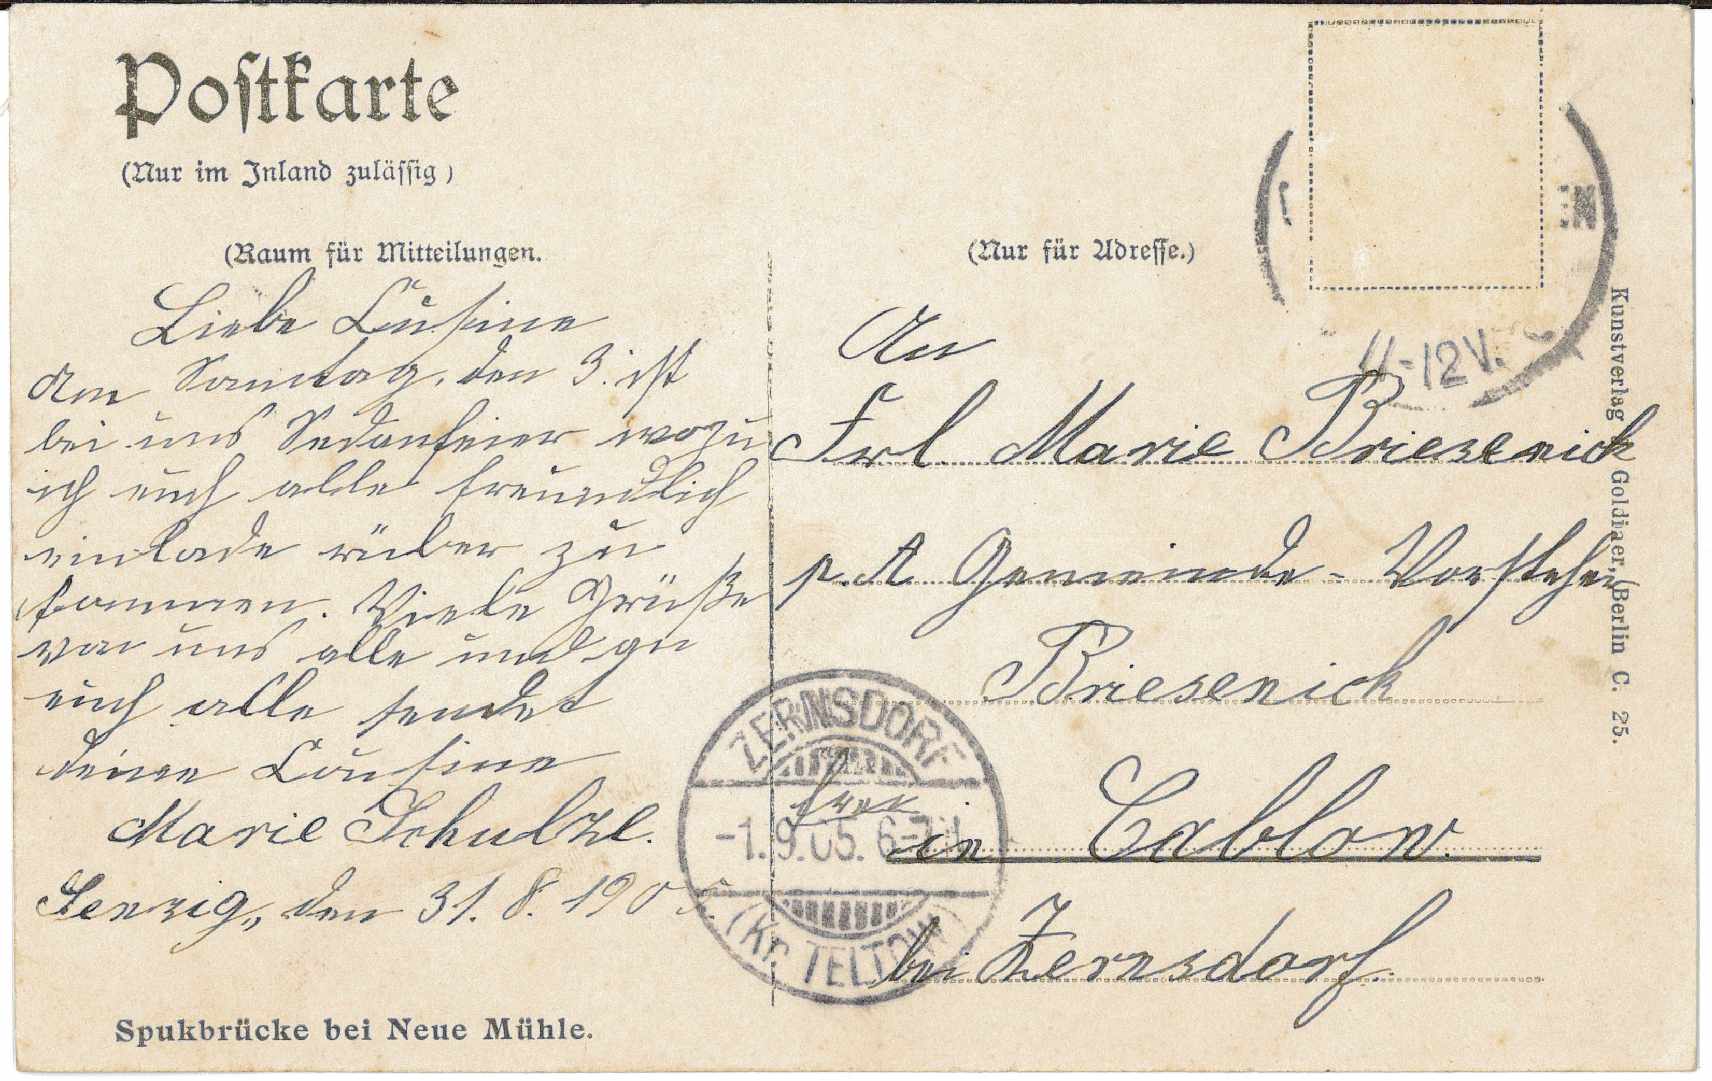 Postkarte
(Nur im Inland zulässig)
(Raum für Mitteilungen.
Liebe Cusine
Am Sonntag, den 3. ist
bei uns Sedanfeier wozu
ich euch alle freundlich
einlade rüber zu
kommen. Viele Grüße
von uns alle und an
euch alle sendet
deine Cousine
Marie Schulze.
Senzig, den 31. 8. 1905.
Spukbrücke bei Neue Mühle.
(Nur für Adresse.)
EN
11-12V.
An
Frl. Marie Briesenick
p. A Gemeinde-Vorsteher
Briesenick
in Cablow.
bei Zernsdorf.
ZERNSDORF
-1.9.05. 6-7
(Kr. TELTOW)
Kunstverlag Goldiner, Berlin C. 25.